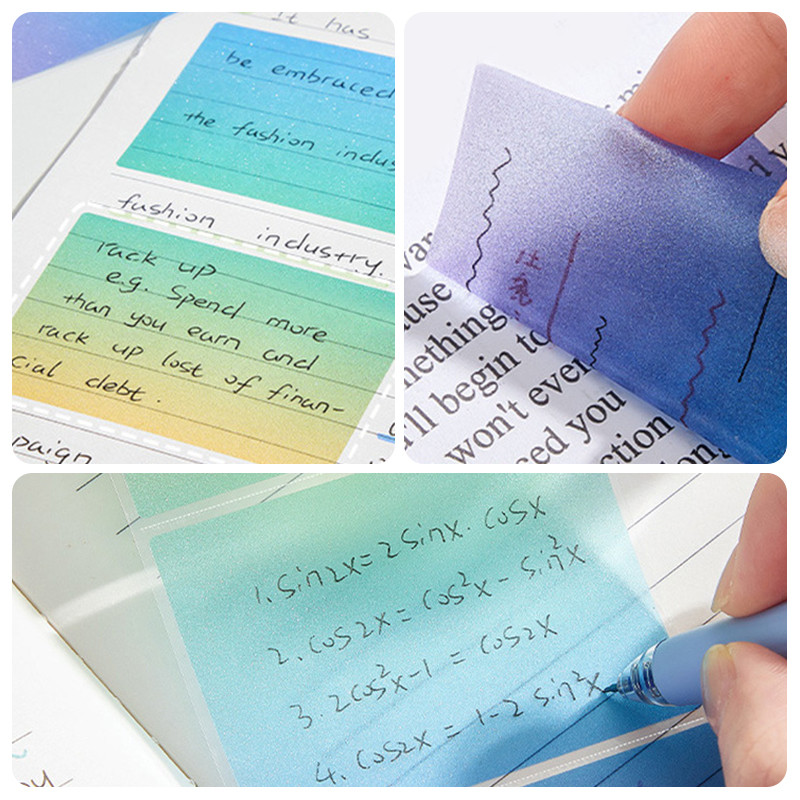 It has
be embraced
the fashion indus
fashion industry.
rack up
e.g. Spend more
than you earn and
rack up lost of finan-
cial debt.
paign
注意
var
ause
nething
'll begin to
won't ever
ced you
ction
long
d y
1. Sin2x = 2 sinx. cosx
2. cos2x = cos²x - sin²x
3. 2cos²x-1 = cos2x
4. cos2x = 1-2 sin²x